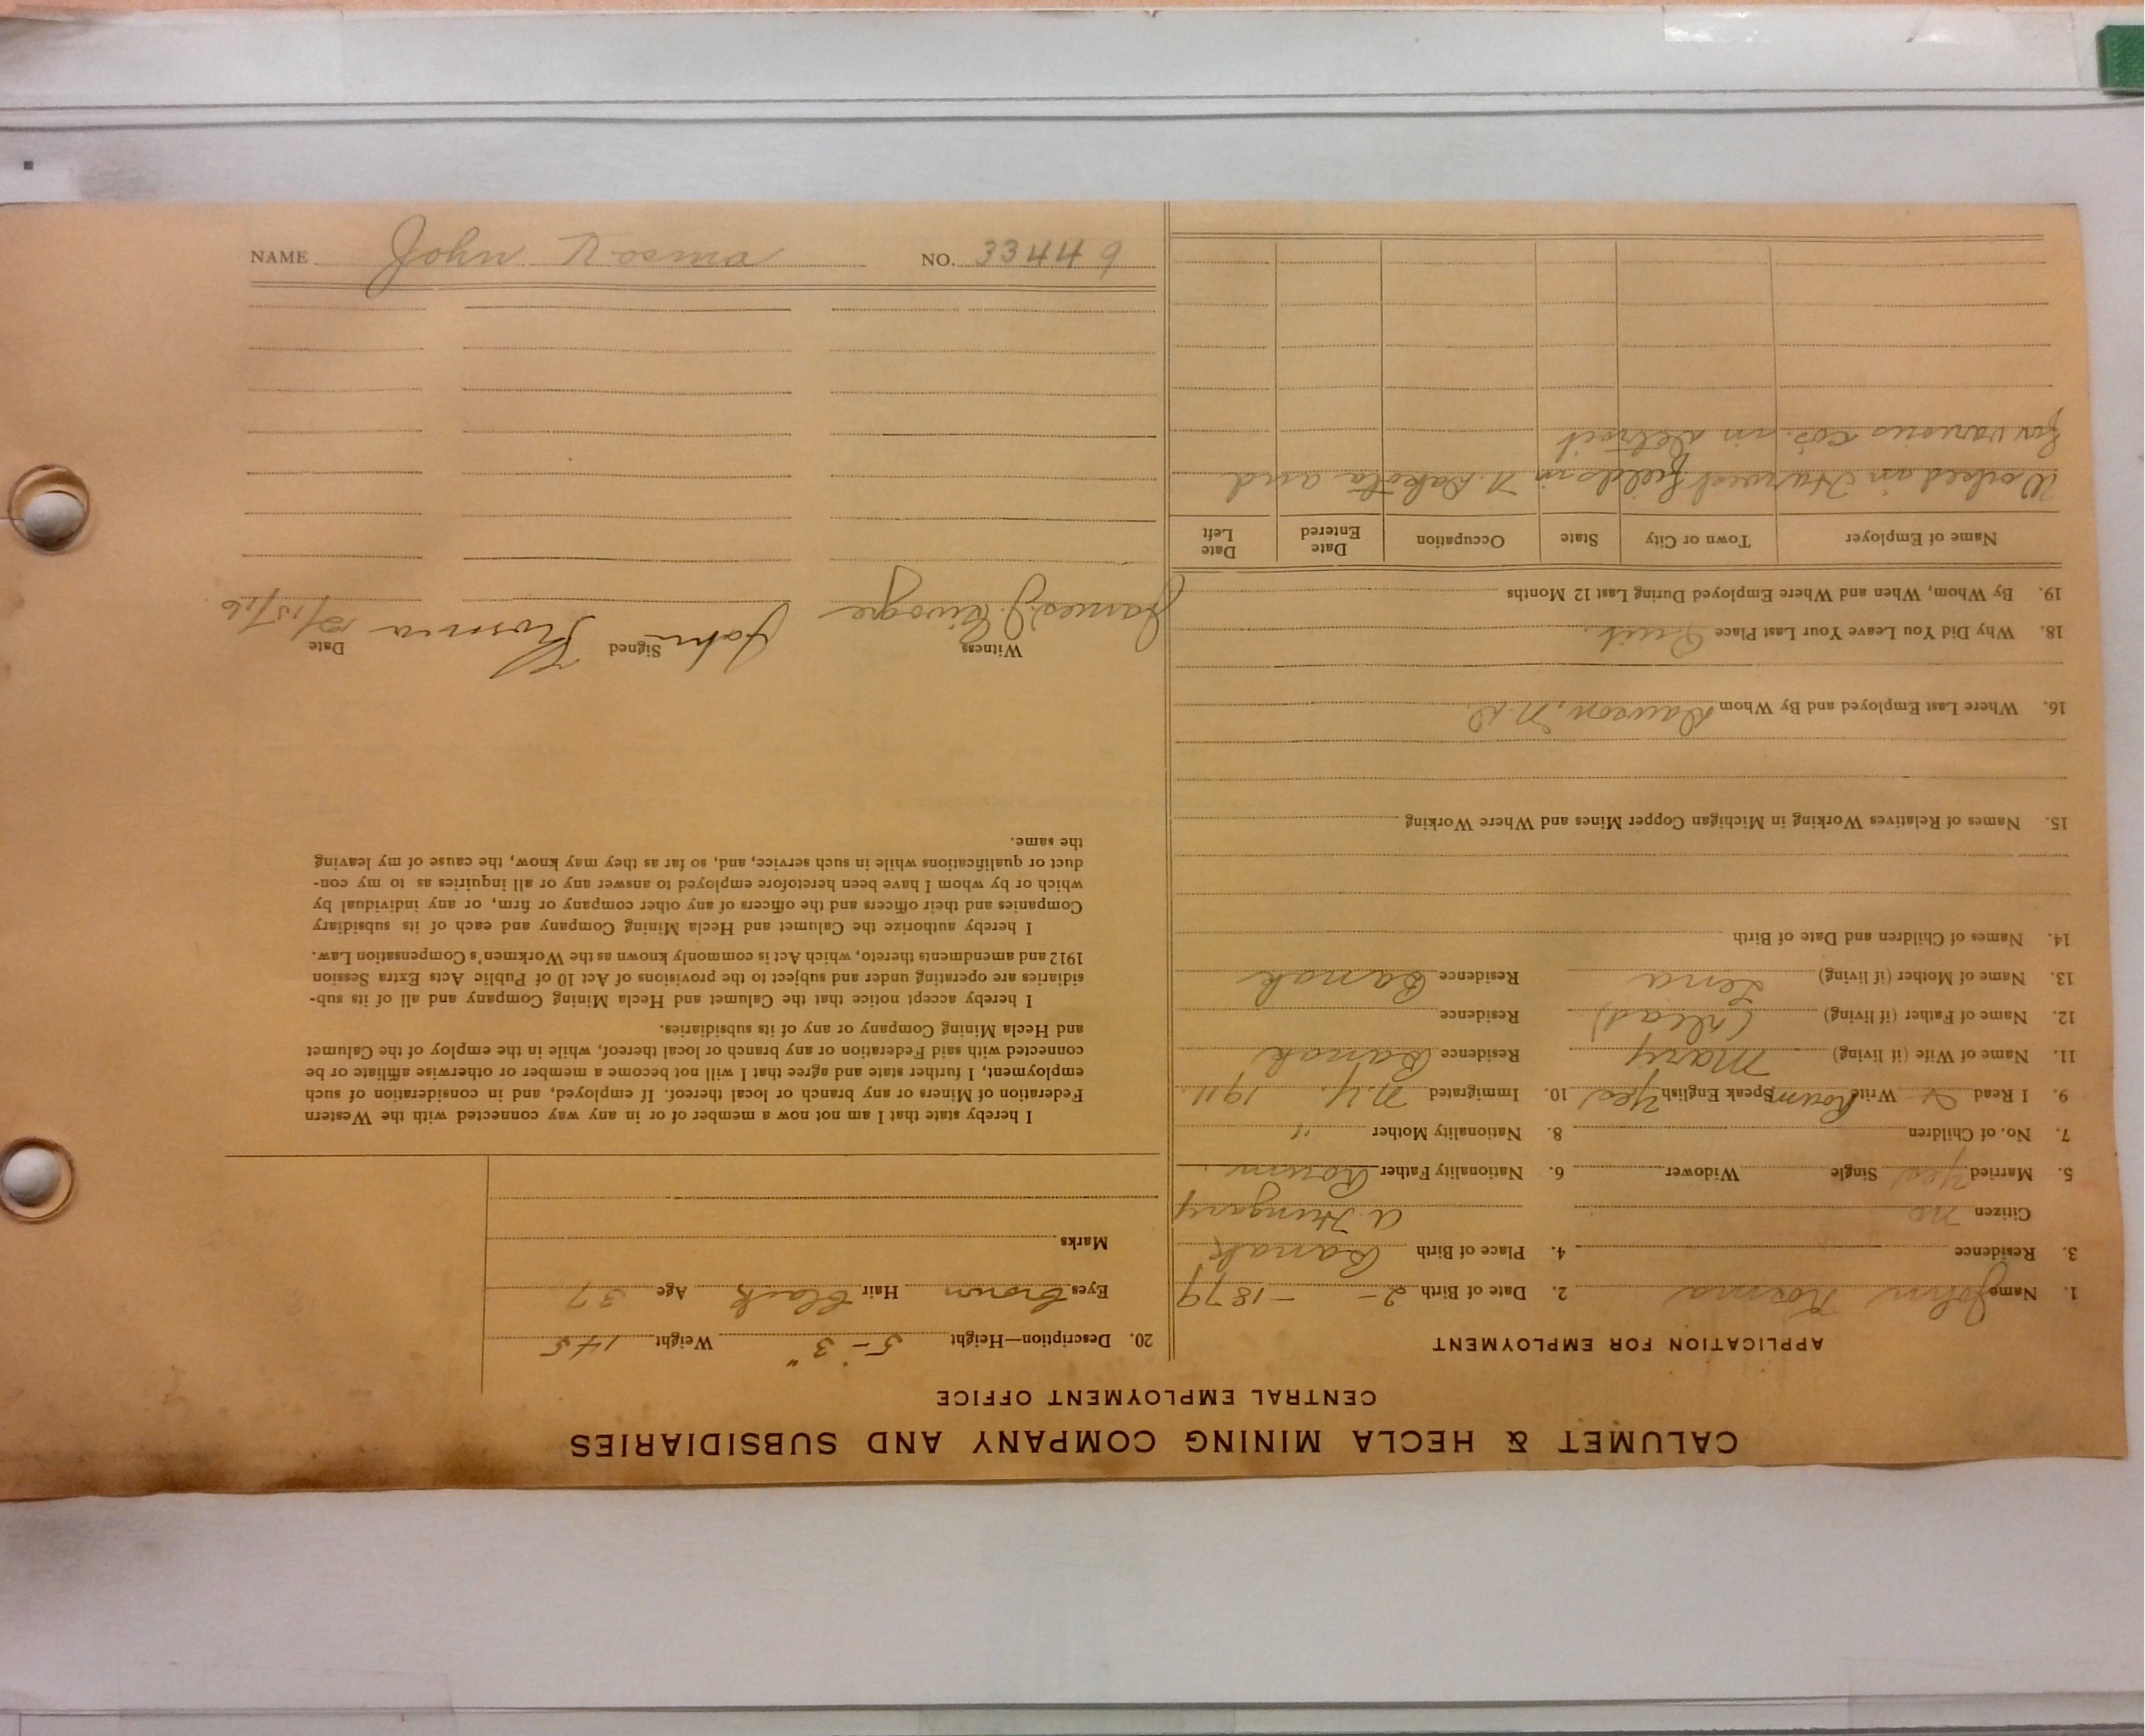 CALUMET & HECLA MINING COMPANY AND SUBSIDIARIES
CENTRAL EMPLOYMENT OFFICE
APPLICATION FOR EMPLOYMENT
1. Name John Kosma 2. Date of Birth 2 - - 1879
3. Residence 4. Place of Birth Banak
Citizen no A. Hungary
5. Married Yes Single Widower 6. Nationality Father Roum.
7. No. of Children 8. Nationality Mother "
9. I Read Write Roum Speak English Yes 10. Immigrated N.Y. 1911
11. Name of Wife (if living) Mary Residence Banak
12. Name of Father (if living) (dead) Residence
13. Name of Mother (if living) Lena Residence Banak
14. Names of Children and Date of Birth
15. Names of Relatives Working in Michigan Copper Mines and Where Working
16. Where Last Employed and By Whom Dawson, N.D.
18. Why Did You Leave Your Last Place Quit.
19. By Whom, When and Where Employed During Last 12 Months
Name of Employer Town or City State Occupation Date Entered Date Left
Worked in Harvest fields in N. Dakota and
for various cos. in Detroit
20. Description—Height 5 - 3" Weight 145
Eyes brown Hair black Age 37
Marks
I hereby state that I am not now a member of or in any way connected with the Western
Federation of Miners or any branch or local thereof. If employed, and in consideration of such
employment, I further state and agree that I will not become a member or otherwise affiliate or be
connected with said Federation or any branch or local thereof, while in the employ of the Calumet
and Hecla Mining Company or any of its subsidiaries.
I hereby accept notice that the Calumet and Hecla Mining Company and all of its sub-
sidiaries are operating under and subject to the provisions of Act 10 of Public Acts Extra Session
1912 and amendments thereto, which Act is commonly known as the Workmen's Compensation Law.
I hereby authorize the Calumet and Hecla Mining Company and each of its subsidiary
Companies and their officers and the officers of any other company or firm, or any individual by
which or by whom I have been heretofore employed to answer any or all inquiries as to my con-
duct or qualifications while in such service, and, so far as they may know, the cause of my leaving
the same.
Witness Signed Date
James J. John Kosma 12/15/16
NAME John Kosma NO. 33446